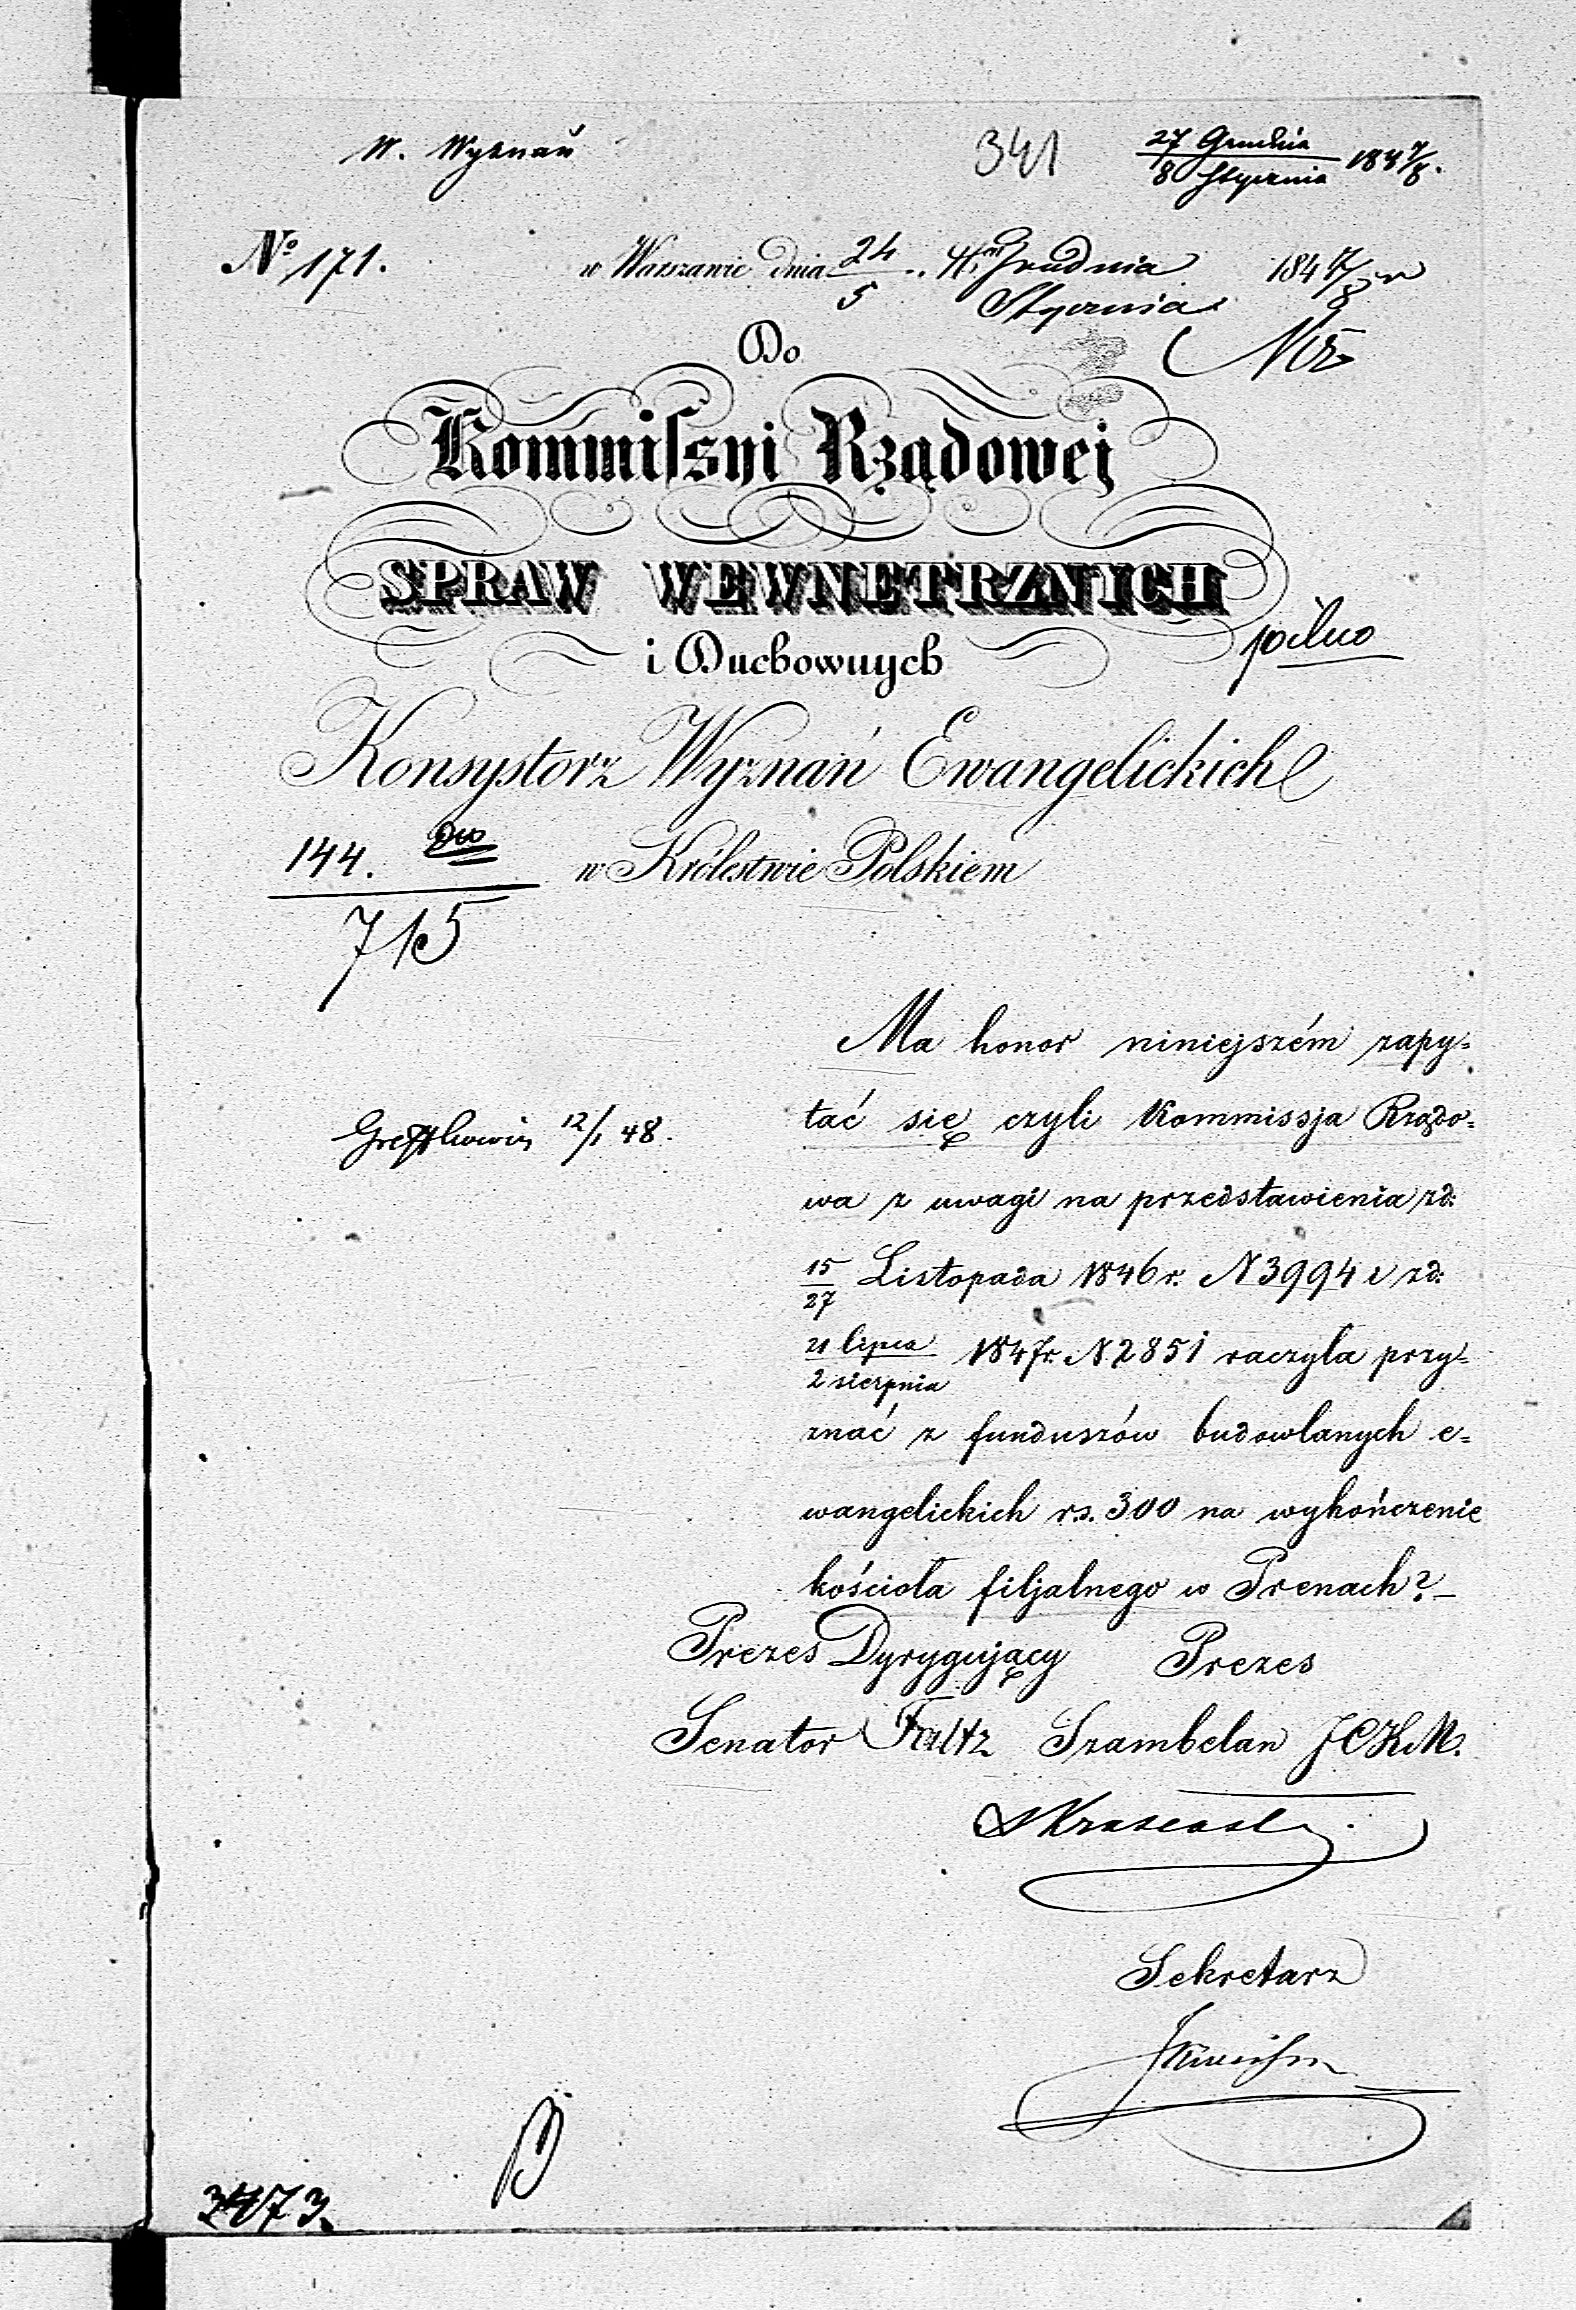 W. Wyznań
341
27 Grudnia 1847/8.
8 Stycznia
No 171.
w Warszawie dnia 24 Grudnia 1847/8 r
5 Stycznia
Do
Kommissyi Rządowej
SPRAW WEWNĘTRZNYCH
pilno
i Duchownych
Konsystorz Wyznań Ewangelickich
w Królestwie Polskiem
144.
715
Ma honor niniejszém zapy=
tać się czyli Kommissja Rządo=
12/1 48.
wa z uwagi na przedstawienia zd:
15/27 Listopada 1846 r. N 3994 i zd:
21 lipca 1847 r. N. 2851 raczyła przy=
2 sierpnia
znać z funduszów budowlanych e=
wangelickich rs. 300 na wykończenie
kościoła filjalnego w Prenach? –
Prezes Dyrygujący Prezes
Senator Faltz Szambelan J.C.K.M.
Sekretarz
3473.